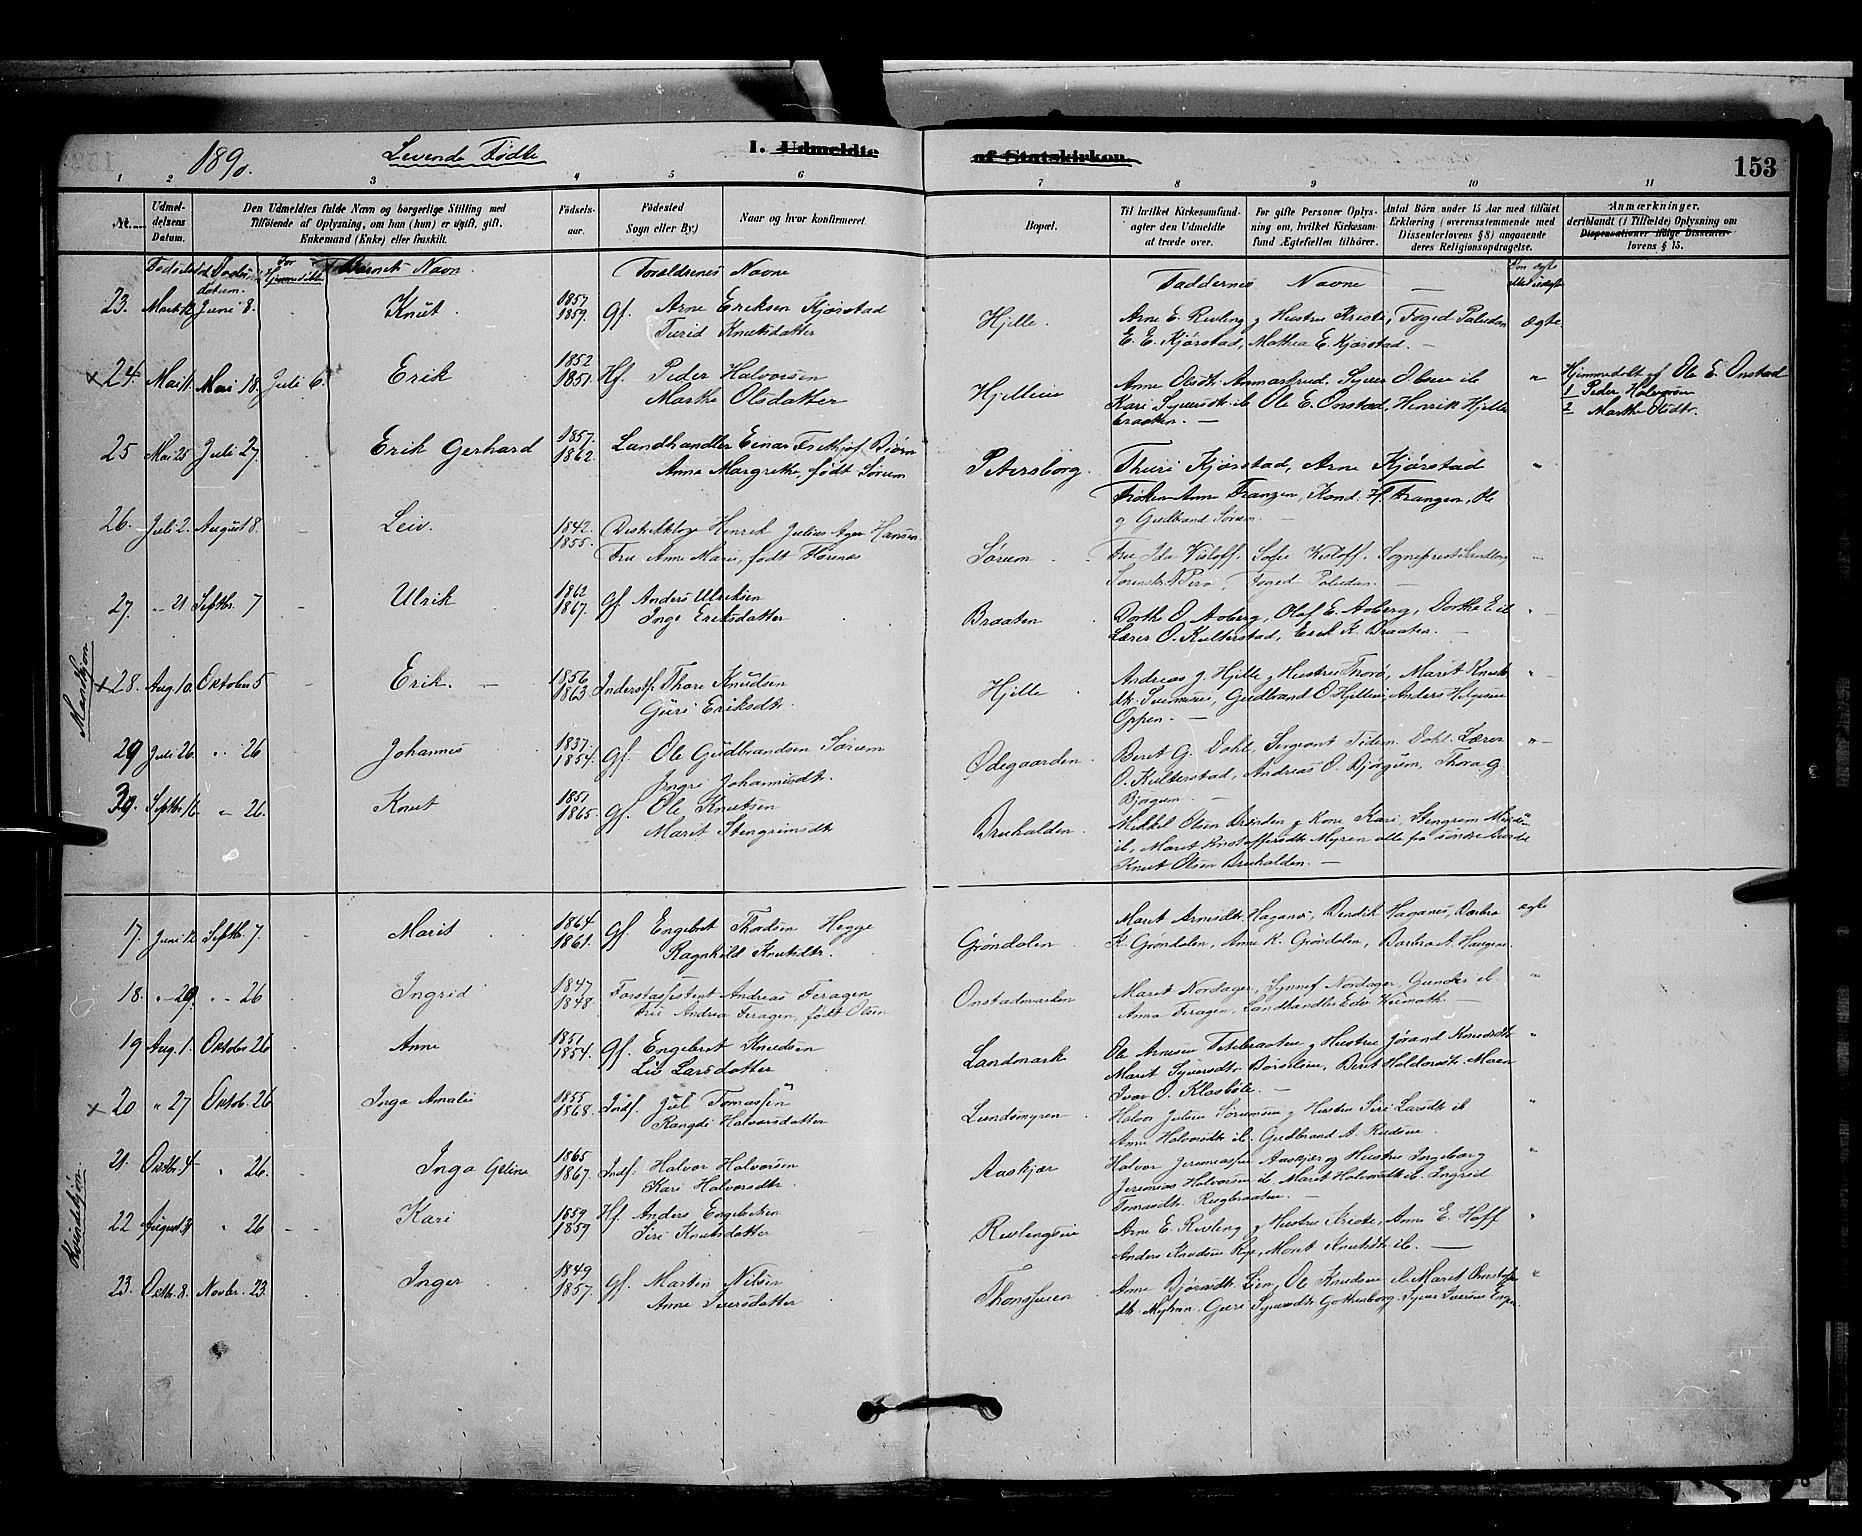 1890.
Levende Fødte
I. Udmeldte
af Statskirken.
153
1 2 3 4 5 6 7 8 9 10 11
Nt.
Udmel-
delsens
Datum.
Den Udmeldtes fulde Navn og borgerlige Stilling med
Tilføiende af Oplysning, om han (hun) er ugift, gift,
Enkemand (Enke) eller fraskilt.
Fødsels-
aar.
Fødested
(Sogn eller By.)
Naar og hvor konfirmeret.
Bopæl.
Til hvilket Kirkesamfund-
agter den Udmeldte
at træde over.
For gifte Personer Oplys-
ning om, hvilket Kirkesam-
fund Ægtefællen tilhører.
Antal Børn under 15 Aar med tilføiet
Erklæring (overensstemmende med
Dissenterlovens § 8) angaaende
deres Religionsopdragelse.
Anmærkninger,
deriblandt (i Tilfælde) Oplysning om
Dispensationer ifølge Dissenter-
lovens § 15.
Barnets Navn
Forældrenes Navne
Faddernes Navne
23. Marts 12 Juni 8. Knut 1857 1859. Gf. Arne Eriksen Kjørstad
Turid Knutsdatter
Hjelle. Arne E. Rivling og Hustru Kriste, Foged Paludan ægte
E. E. Kjørstad, Mathea E. Kjørstad. —
x 24. Mai 11 Mai 18. Juli 6. Erik 1852 1851. Hf. Peder Halvorsen
Marthe Olsdatter
Hjelleie Anne Olsdt. Anmarkrud. Syver Olsen ib
Kari Syversdt. ib Ole E. Onstad, Henrik Hjelle
braaten. —
" Hjemmedøbt af Ole E. Onstad
1 Peder Halvorsen
2 Marthe Olsdt.
25 Mai 25 Juli 27. Erik Gerhard 1857. 1862. Landhandler Einar Frithjof Bjørn
Anna Margrethe, født Sørum
Petersborg. Thuri Kjørstad, Arne Kjørstad "
Frøken Anne Franzen, Kand. H. Frangen, Ole
og Gudbrand Sørum. —
26. Juli 2. August 8. Leiv. 1842. 1855. Distriktslæge Henrik Julius Ager Hansen
Fru Anne Marie, født
Sørum Fru Ida Kisloff. Sofie Kisloff. Sogneprest Sandberg
Foged Paludan. —
27. " 21 Septbr. 7 Ulrik 1862 1867. Gf. Anders Ulriksen
Inge Eriksdatter
Braaten Dorthe O. Aaberg, Olaf E. Aaberg, Dorthe E. ib
Lærer O. Kulterstad, Erik K. Braaten. —
Mandkjøn
28. Aug. 10. Oktober 5 Erik. 1856 1863 Inderst, Thore Knudsen
Guri Eriksdtr
Hjelle Andreas G. Hjelle og Hustru Thora, Marit Knuts
dt. Gudbrand O. Hjelleie, Anders Helgesen
Oppen. —
29 Juli 26. " 26 Johannes 1837. 1854. Gf. Ole Gudbrandsen Sørum
Ingri Johannisdt.
Ødegaarden Beret G. Dahl, Sergeant Tidem. Dahl. Lærer
O. Kulterstad, Andreas O. Bjørgum, Thora G.
Bjørgum. —
30. Septbr. 16. " 26. Knut 1851 1865. Gf. Ole Knutsen
Marit Stengrimsdt.
Bruhalden. Mikkel Olsen Brænden og Kone Kari, Stengrim
ib, Marit Kristoffersdt. Myren alle fra Søndre Aurdal
Knut Olsen Bruhalden. —
17. Juni 12 Septbr. 7. Marit 1864 1861. Gf. Engebret Thorsen Hegge
Ragnhild Knutsdtr.
Grøndalen. Marit Arnesdt. Haganes, Bendik Haganes, Barbro ægte
K. Grøndalen, Anne K. Grøndalen, Barbro A. Haugene.
18. " 29. " 26 Ingrid 1847 1848. Forstassistent Andreas Feragen
Fru Andrea Feragen, født Olsen
Onstadmarken Marit Nordager, Synnef Nordager, Gunder ib "
Anna Feragen, Landhandler Eder Kvernoth. —
19 Aug. 1. Oktober 26 Anne 1851 1854. Gf. Engebret Knudsen
Liv Larsdatter
Landmark Ole Arnesen Titelbraaten og Hustru Jørand Knudsdt. "
Marit Syversdt. Børslien, Beret Haldorsdt. Moen
Ivar O. Klasbøle. —
x 20 " 27 Oktob. 26 Inga Amalie 1855 1868. Indf. Jul Tomassen
Rangdi Halvorsdatter
Lundsmyren Halvor Julsen Sørumsen og Hustru Siri Larsdt. ib "
Anne Halvorsdt. ib Gudbrand A. Rudsen.
21. Oktbr. 4 " 26. Inga Geline 1865 1867. Indf. Halvor Halvorsen
Kari Halvorsdtr.
Aaskjær Halvor Jeremiassen Aaskjær og Hustru Ingeborg "
Jeremias Halvorsen ib. Marit Halvorsdt. ib. Ingrid
Tomasdt. Rugbraaten. —
Kvindekjøn.
22 August 31 " 26 Kari 1859 1859 Hf. Anders Engebretsen
Siri Knutsdatter
Rivlengseie Arne E. Rivling og Hustru Kriste, Anne E. Hoff "
Anders Knudsen Rye, Marit Knutsdt. ib. —
23. Oktbr. 8. Novbr. 23. Inger 1849 1857. Gf. Martin Nilsen
Anne Iversdatter
Thonseien Anne Bjørnsdt. Lien, Ole Knudsen ib. Marit "
dt. Myhren. Guri Syversdt. Gothenborg. Syver Iversen Engen.